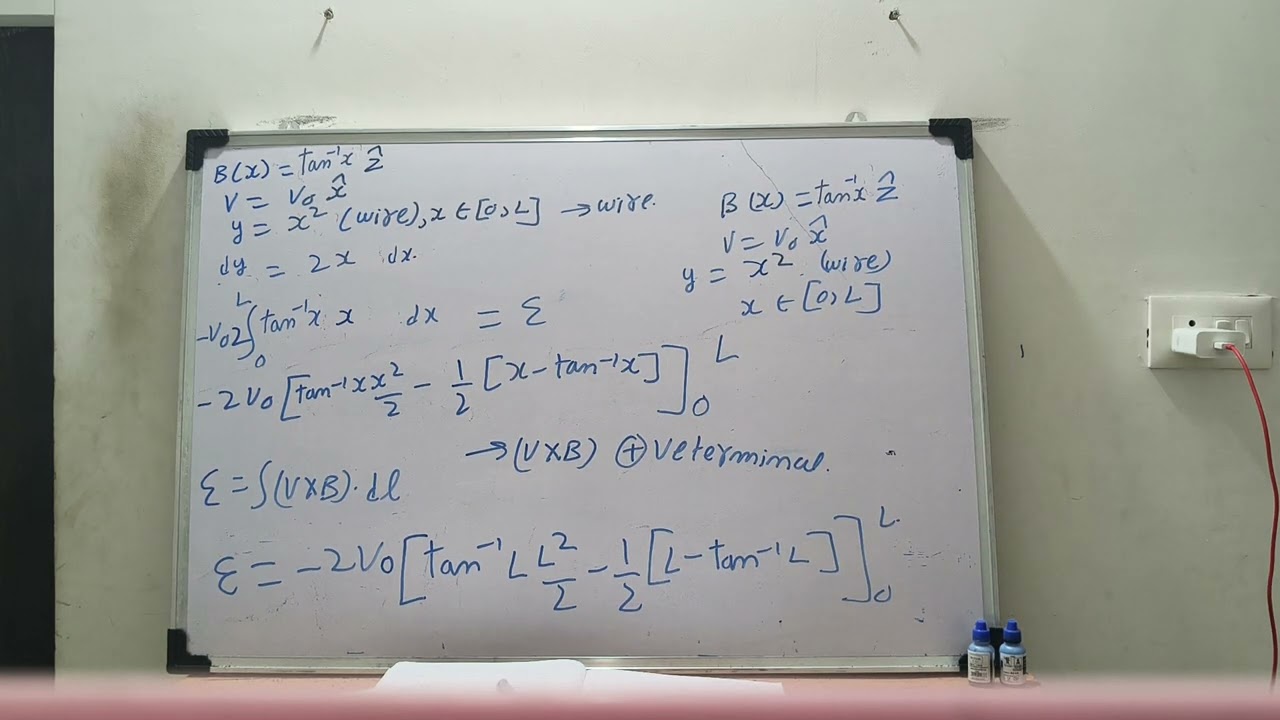 B(x) = tan⁻¹x ẑ
V = V₀ x̂
y = x² (wire), x ∈ [0, L] → wire.
dy = 2x dx.
-V₀2∫₀ᴸ tan⁻¹x x dx = ε
-2V₀[tan⁻¹x x²/2 - 1/2[x - tan⁻¹x]]₀ᴸ
→ (V×B) ⊕ ve terminal.
ε = ∫(V×B)·dl
ε = -2V₀[tan⁻¹L L²/2 - 1/2[L - tan⁻¹L]]₀ᴸ
B(x) = tan⁻¹x ẑ
V = V₀ x̂
y = x² (wire)
x ∈ [0, L]